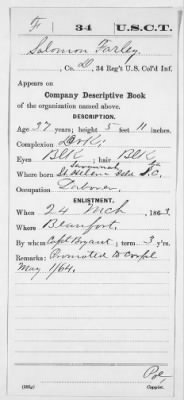 F 34 U.S.C.T.
Solomon Farley
, Co. D, 34 Reg't U.S. Col'd Inf.
Appears on
Company Descriptive Book
of the organization named above.
DESCRIPTION.
Age 27 years; height 5 feet 11 inches.
Complexion Dark
Eyes Blk ; hair Blk
Savannah Ga
Where born St Helena Isld S.C.
Occupation Laborer
ENLISTMENT.
When 24 Mch , 1863
Where Beaufort.
By whom Capt Bryant ; term 3 y'rs.
Remarks: Promoted to Corpl
May 1/64.
Copyist.